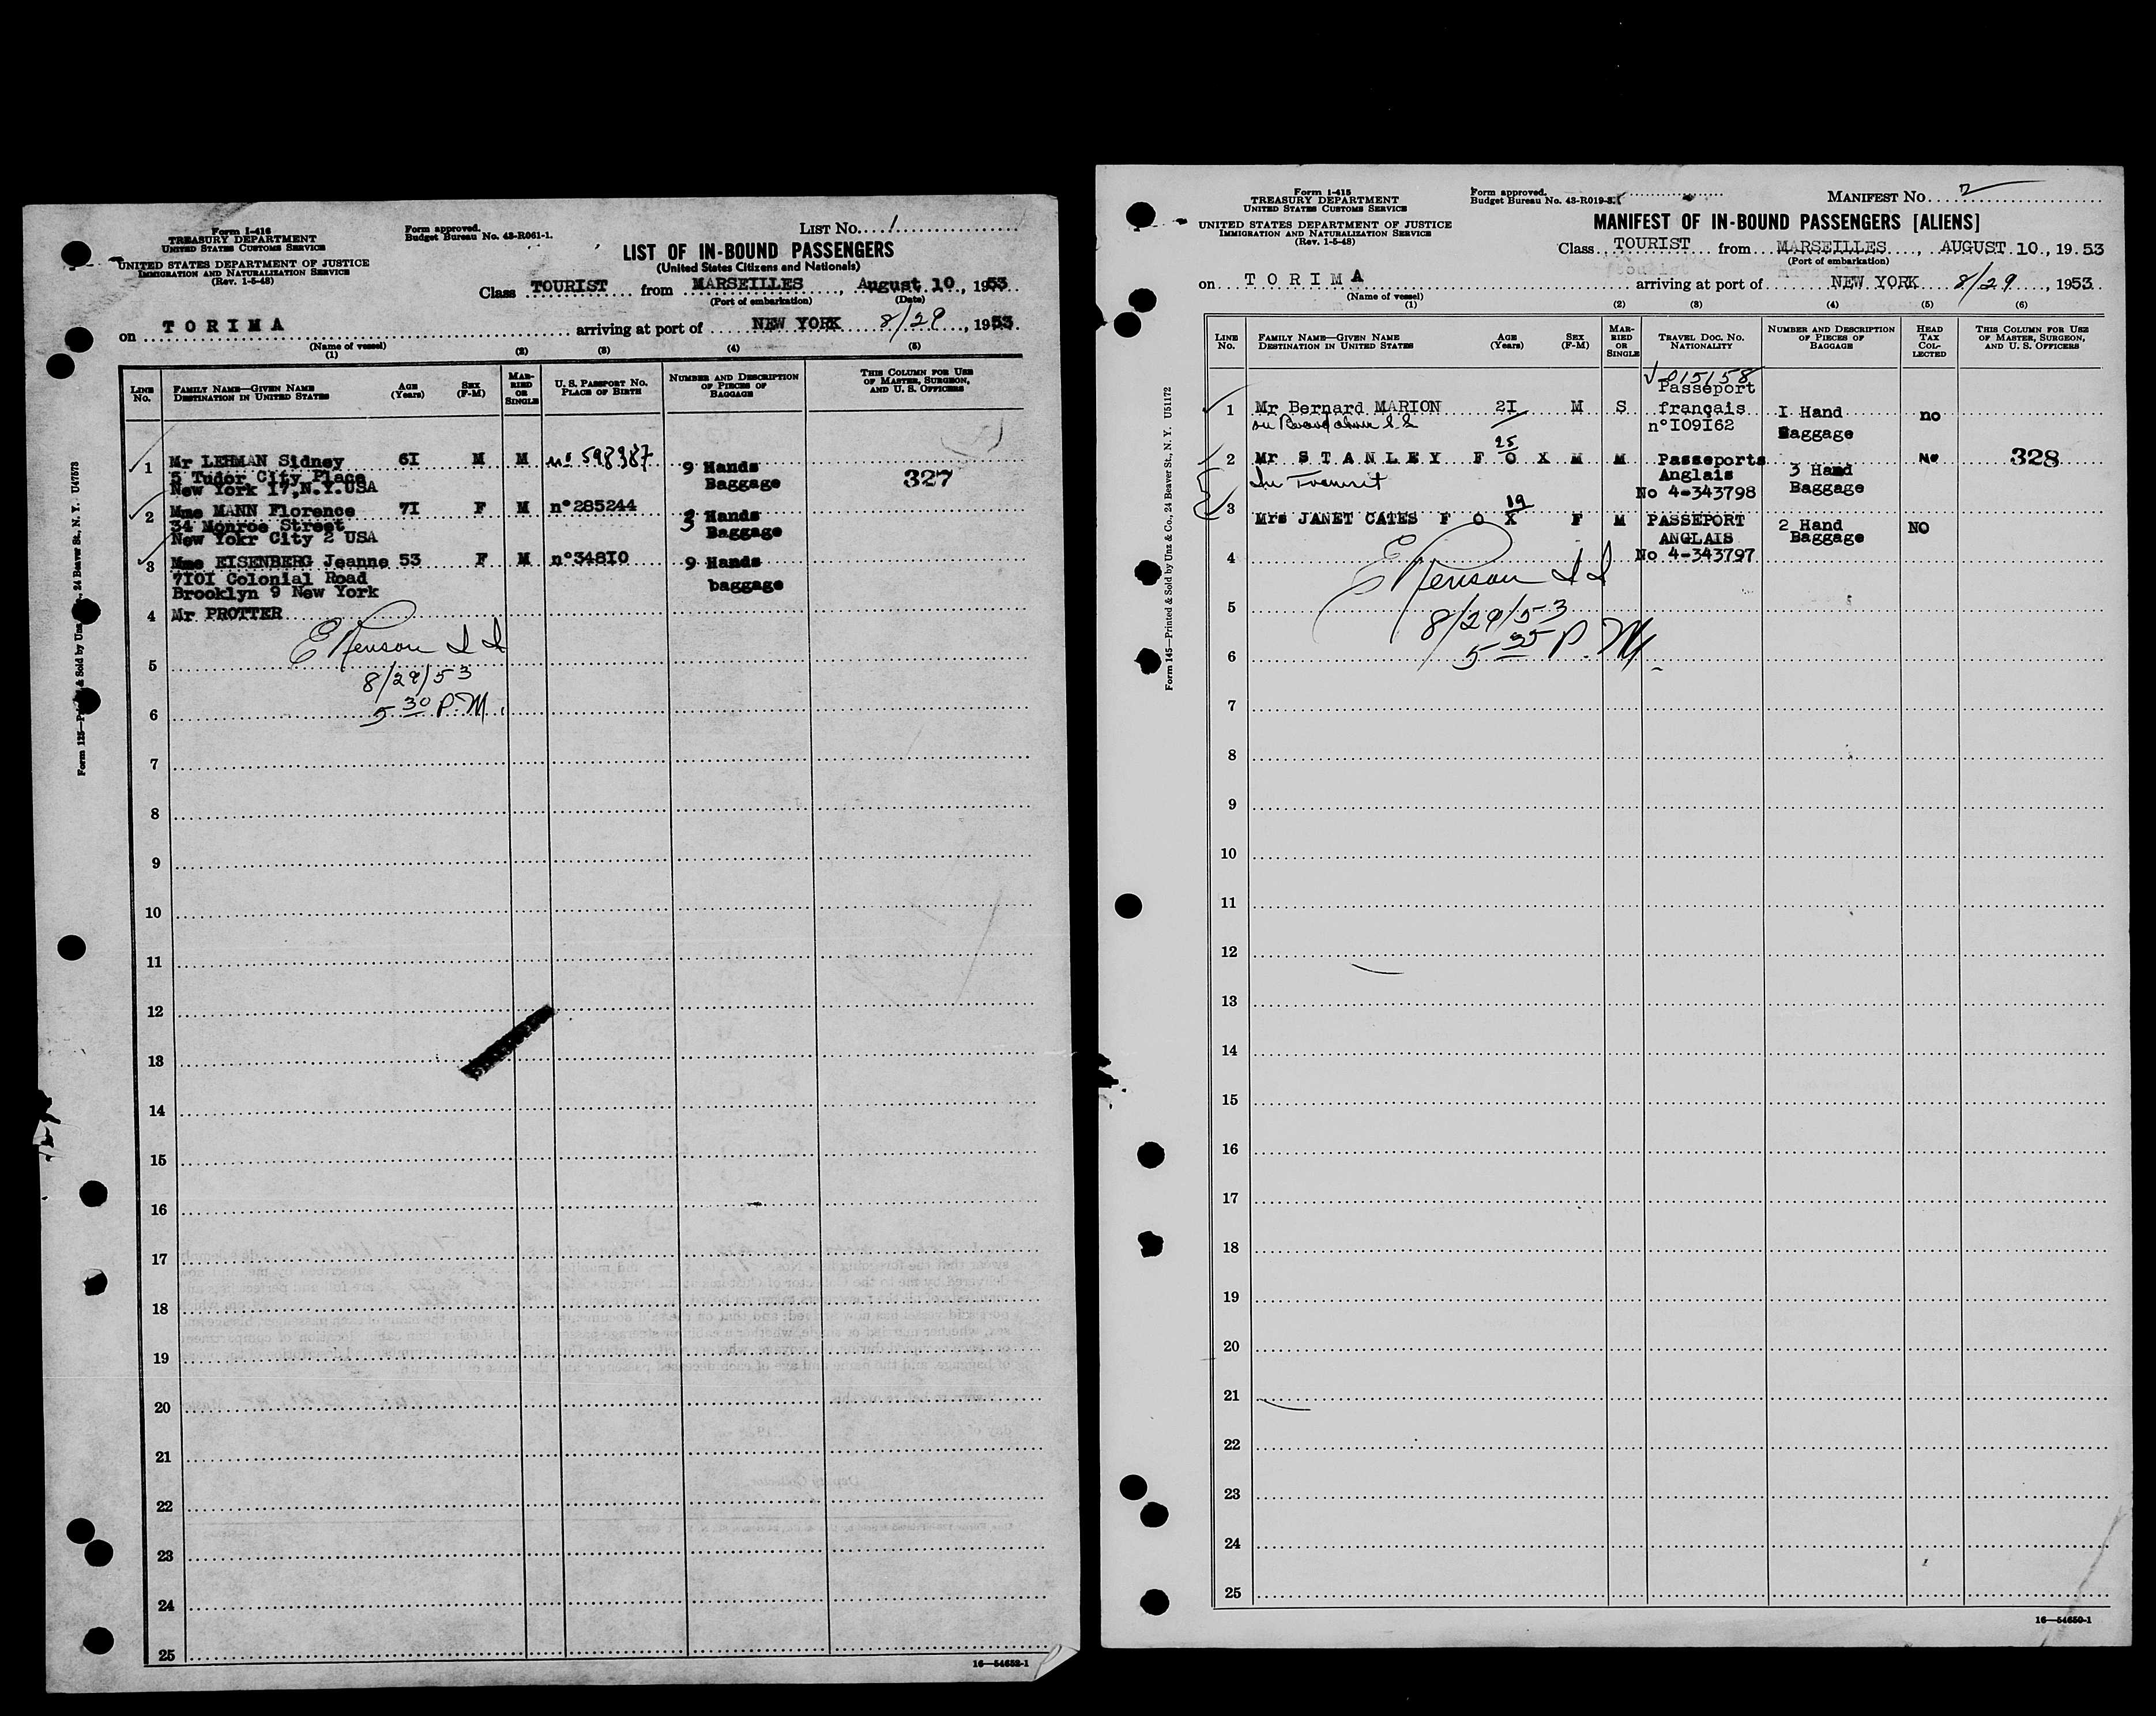 Form I-416
TREASURY DEPARTMENT
UNITED STATES CUSTOMS SERVICE
UNITED STATES DEPARTMENT OF JUSTICE
IMMIGRATION AND NATURALIZATION SERVICE
(Rev. 1-5-48)
Form approved.
Budget Bureau No. 43-R061-1.
LIST No. 1
LIST OF IN-BOUND PASSENGERS
(United States Citizens and Nationals)
Class TOURIST from MARSEILLES, August 10, 1953
(Port of embarkation) (Date)
on TORIMA arriving at port of NEW YORK 8/29, 1953.
(Name of vessel)
(1) (2) (3) (4) (5)
LINE No.
FAMILY NAME—GIVEN NAME
DESTINATION IN UNITED STATES
AGE (Years)
SEX (F-M)
MARRIED OR SINGLE
U. S. PASSPORT NO.
PLACE OF BIRTH
NUMBER AND DESCRIPTION OF PIECES OF BAGGAGE
THIS COLUMN FOR USE OF MASTER, SURGEON, AND U. S. OFFICERS
1 Mr LEHMAN Sidney 6I M M no 598387 9 Hands Baggage 327
5 Tudor City Place
New York I7,N.Y.USA
2 Mme MANN Florence 7I F M n°285244 3 Hands Baggage
34 Monroe Street
New Yokr City 2 USA
3 Mme EISENBERG Jeanne 53 F M n°348I0 9 Hands baggage
7I0I Colonial Road
Brooklyn 9 New York
4 Mr PROTTER
8/29/53
5 30 P.M.
5
6
7
8
9
10
11
12
13
14
15
16
17
18
19
20
21
22
23
24
25
16—54652-1
24 Beaver St., N. Y. U47573
Form I-415
TREASURY DEPARTMENT
UNITED STATES CUSTOMS SERVICE
UNITED STATES DEPARTMENT OF JUSTICE
IMMIGRATION AND NATURALIZATION SERVICE
(Rev. 1-5-48)
Form approved.
Budget Bureau No. 43-R019-3.
MANIFEST No. 2
MANIFEST OF IN-BOUND PASSENGERS [ALIENS]
Class TOURIST from MARSEILLES, AUGUST 10, 1953
(Port of embarkation)
on TORIMA arriving at port of NEW YORK 8/29, 1953.
(Name of vessel)
(1) (2) (3) (4) (5) (6)
LINE No.
FAMILY NAME—GIVEN NAME
DESTINATION IN UNITED STATES
AGE (Years)
SEX (F-M)
MARRIED OR SINGLE
TRAVEL DOC. NO.
NATIONALITY
NUMBER AND DESCRIPTION OF PIECES OF BAGGAGE
HEAD TAX COLLECTED
THIS COLUMN FOR USE OF MASTER, SURGEON, AND U. S. OFFICERS
V 015158
1 Mr Bernard MARION 2I M S Passeport français n°I09I62 I Hand Baggage no
2 Mr STANLEY FOX 25 M M Passeports Anglais No 4-343798 3 Hand Baggage No 328
In Transit
3 Mrs JANET CATES FOX 19 F M PASSEPORT ANGLAIS No 4-343797 2 Hand Baggage NO
4
8/29/53
5 35 P.M.
5
6
7
8
9
10
11
12
13
14
15
16
17
18
19
20
21
22
23
24
25
16—54650-1
Form 145—Printed & Sold by Unz & Co., 24 Beaver St., N. Y. U51172